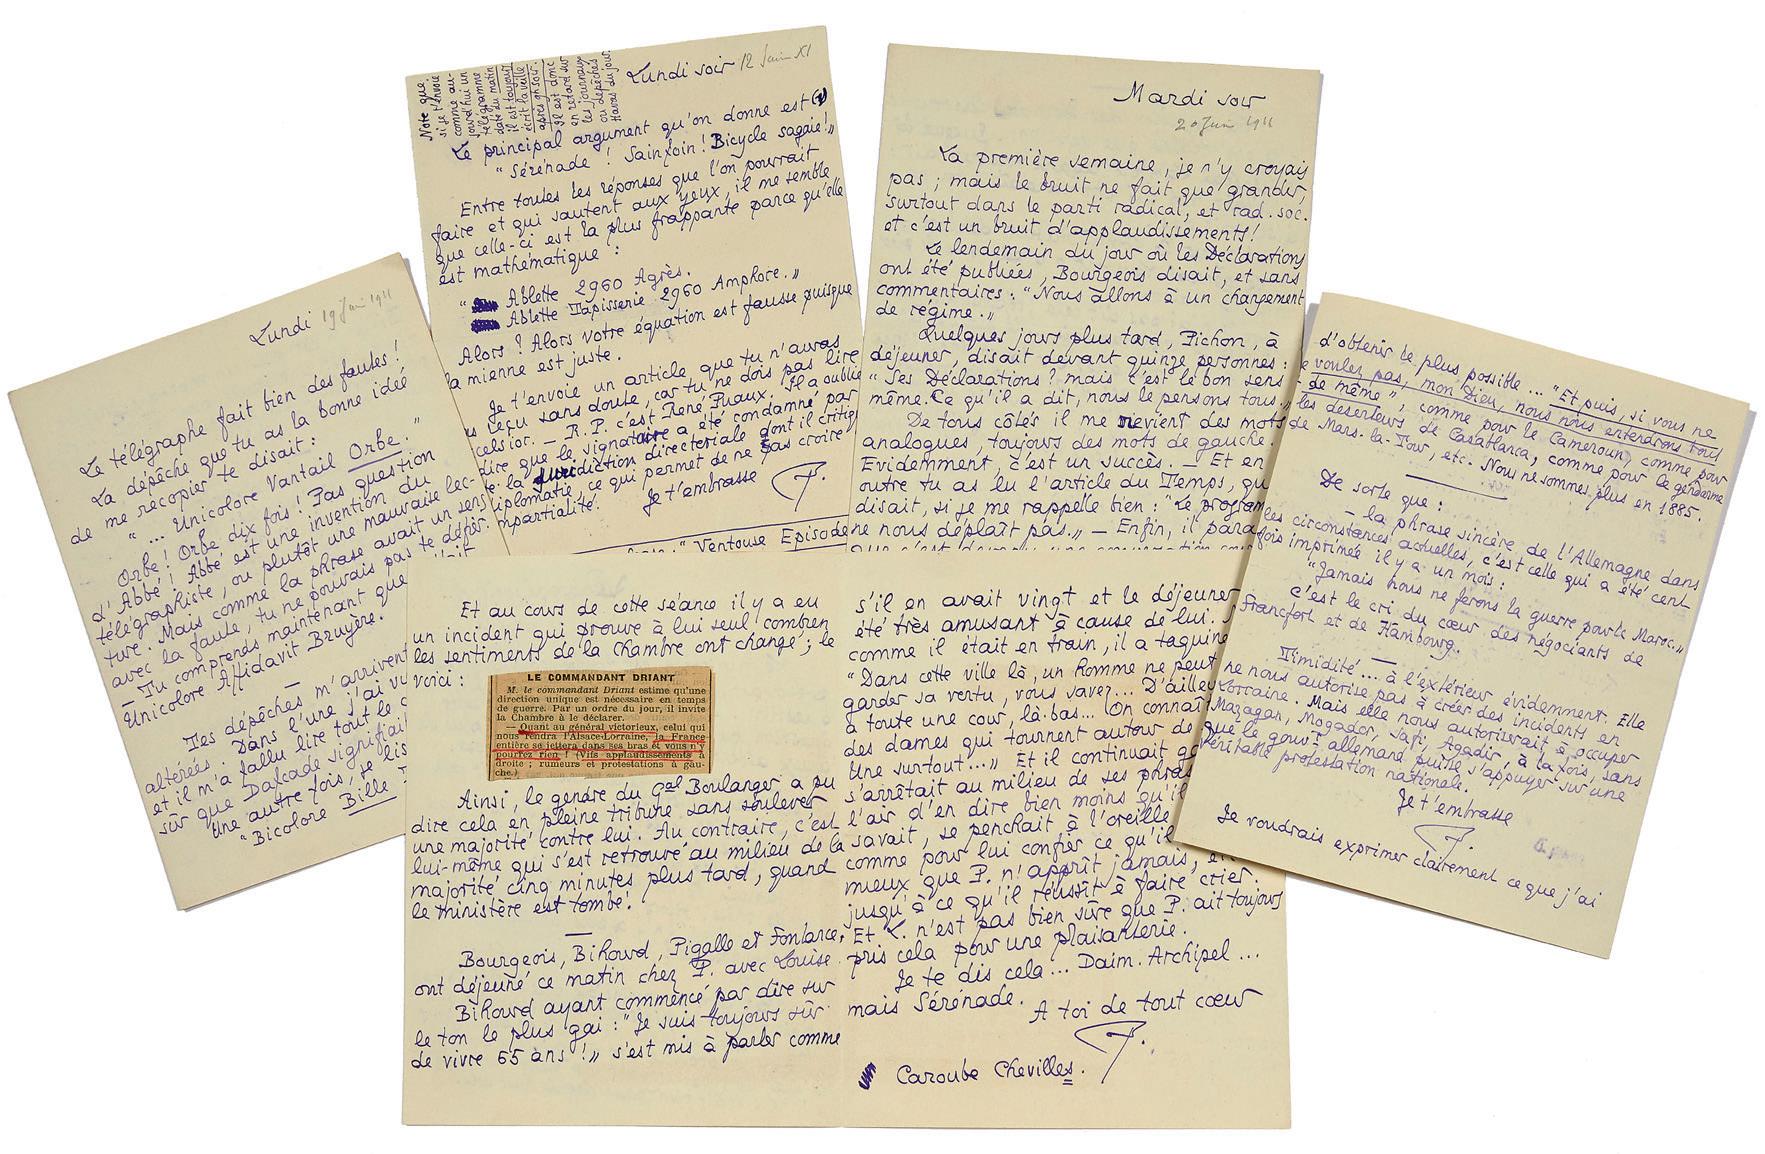 Lundi 19 Juin 1911
Le télégraphe fait bien des fautes !
La dépêche que tu as la bonne idée
de me recopier te disait :
"... Unicolore Vantail Orbe."
Orbe ! Orbe dix fois ! Pas question
d'Abbé ! Abbé est une invention du
télégraphiste, ou plutôt une mauvaise lec-
ture. Mais comme la phrase avait un sens
avec la faute, tu ne pouvais pas te défier.
— Tu comprends maintenant que
Unicolore Affidavit Bruyère.
Tes dépêches m'arrivent
altérées. Dans l'une j'ai vu
et il m'a fallu lire tout le
sûr que Dalcade signifiait
Une autre fois, je lis
"Bicolore Bille
Note que,
si je t'envoie
comme au-
jourd'hui un
télégramme
daté du matin
il est toujours
écrit la veille
après 9h soir.
Il est donc
en retard sur
les journaux
ou dépêches
Havas du jour.
Lundi soir 12 Juin XI
Le principal argument qu'on donne est
"Sérénade ! Sainfoin ! Bicycle sagaie !"
Entre toutes les réponses que l'on pourrait
faire et qui sautent aux yeux, il me semble
que celle-ci est la plus frappante parce qu'elle
est mathématique :
" Ablette 2960 Agrès.
Ablette Tapisserie 2960 Amphore."
Alors ? Alors votre équation est fausse puisque
la mienne est juste.
Je t'envoie un article que tu n'auras
pas reçu sans doute, car tu ne dois pas lire
Excelsior. — R.P. c'est René Puaux. Il a oublié
dire que le signataire a été condamné par
la juridiction directoriale dont il critique
diplomatie, ce qui permet de ne pas croire
impartialité. Je t'embrasse
"Ventouse Episode
Mardi soir
20 Juin 1911
La première semaine, je n'y croyais
pas ; mais le bruit ne fait que grandir,
surtout dans le parti radical, et rad. soc.
et c'est un bruit d'applaudissements !
Le lendemain du jour où les Déclarations
ont été publiées, Bourgeois disait, et sans
commentaires : "Nous allons à un changement
de régime."
Quelques jours plus tard, Pichon, à
déjeuner, disait devant quinze personnes :
"Ses Déclarations ? mais c'est le bon sens
même. Ce qu'il a dit, nous le pensons tous."
De tous côtés il me revient des mots
analogues, toujours des mots de gauche.
Evidemment, c'est un succès. — Et en
outre tu as lu l'article du Temps, qui
disait, si je me rappelle bien : "Le program
ne nous déplaît pas." — Enfin, il paraî
d'obtenir le plus possible ... "Et puis, si vous ne
le voulez pas, mon Dieu, nous nous entendrons tout
de même", comme pour le Cameroun, comme pour
les déserteurs de Casablanca, comme pour le gendarme
de Mars-la-Tour, etc. Nous ne sommes plus en 1885.
De sorte que :
— la phrase sincère de l'Allemagne dans
les circonstances actuelles, c'est celle qui a été cent
fois imprimée il y a un mois :
"Jamais nous ne ferons la guerre pour le Maroc."
c'est le cri du cœur des négociants de
Francfort et de Hambourg.
Timidité ... à l'extérieur évidemment. Elle
ne nous autorise pas à créer des incidents en
Lorraine. Mais elle nous autoriserait à occuper
Mazagan, Mogador, Safi, Agadir, à la fois, sans
que le gouvt allemand puisse s'appuyer sur une
véritable protestation nationale.
Je t'embrasse
Je voudrais exprimer clairement ce que j'ai
Et au cours de cette séance il y a eu
un incident qui prouve à lui seul combien
les sentiments de la Chambre ont changé ; le
voici :
LE COMMANDANT DRIANT
M. le commandant Driant estime qu'une
direction unique est nécessaire en temps
de guerre. Par un ordre du jour, il invite
la Chambre à le déclarer.
— Quant au général victorieux, celui qui
nous rendra l'Alsace-Lorraine, la France
entière se jettera dans ses bras et vous n'y
pourrez rien ! (Vifs applaudissements à
droite ; rumeurs et protestations à gau-
che.)
Ainsi, le gendre du Gal Boulanger a pu
dire cela en pleine tribune sans soulever
une majorité contre lui. Au contraire, c'est
lui-même qui s'est retrouvé au milieu de la
majorité cinq minutes plus tard, quand
le ministère est tombé.
Bourgeois, Bihourd, Pigalle et Fontance,
ont déjeuné ce matin chez P. avec Louise
Bihourd ayant commencé par dire sur
le ton le plus gai : "Je suis toujours sûr
de vivre 65 ans !" s'est mis à parler comme
s'il en avait vingt et le déjeuner
été très amusant à cause de lui.
comme il était en train, il a taquiné
"Dans cette ville là, un homme ne peut
garder sa vertu, vous savez... D'ailleurs
a toute une cour, là-bas... On connaît
des dames qui tournent autour de
Une surtout..." Et il continuait
s'arrêtait au milieu de ses phrases
l'air d'en dire bien moins qu'il
savait, se penchait à l'oreille
comme pour lui confier ce qu'il
mieux que P. n'apprît jamais,
jusqu'à ce qu'il réussît à faire crier.
Et L. n'est pas bien sûre que P. ait toujours
pris cela pour une plaisanterie.
Je te dis cela... Daim. Archipel ...
mais Sérénade.
A toi de tout cœur
Caroube Chevilles.